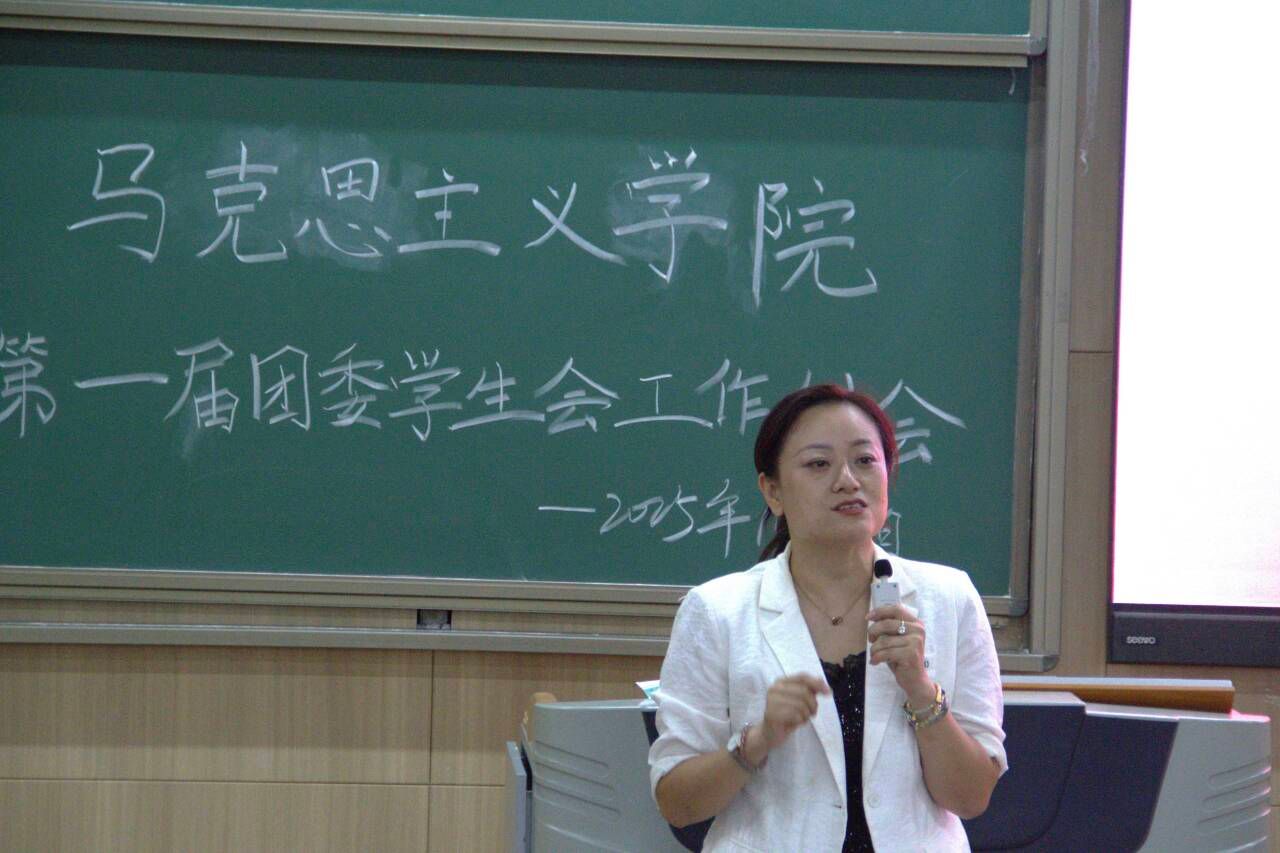 马克思主义学院
第一届团委学生会工作 会
—2025年
seewo